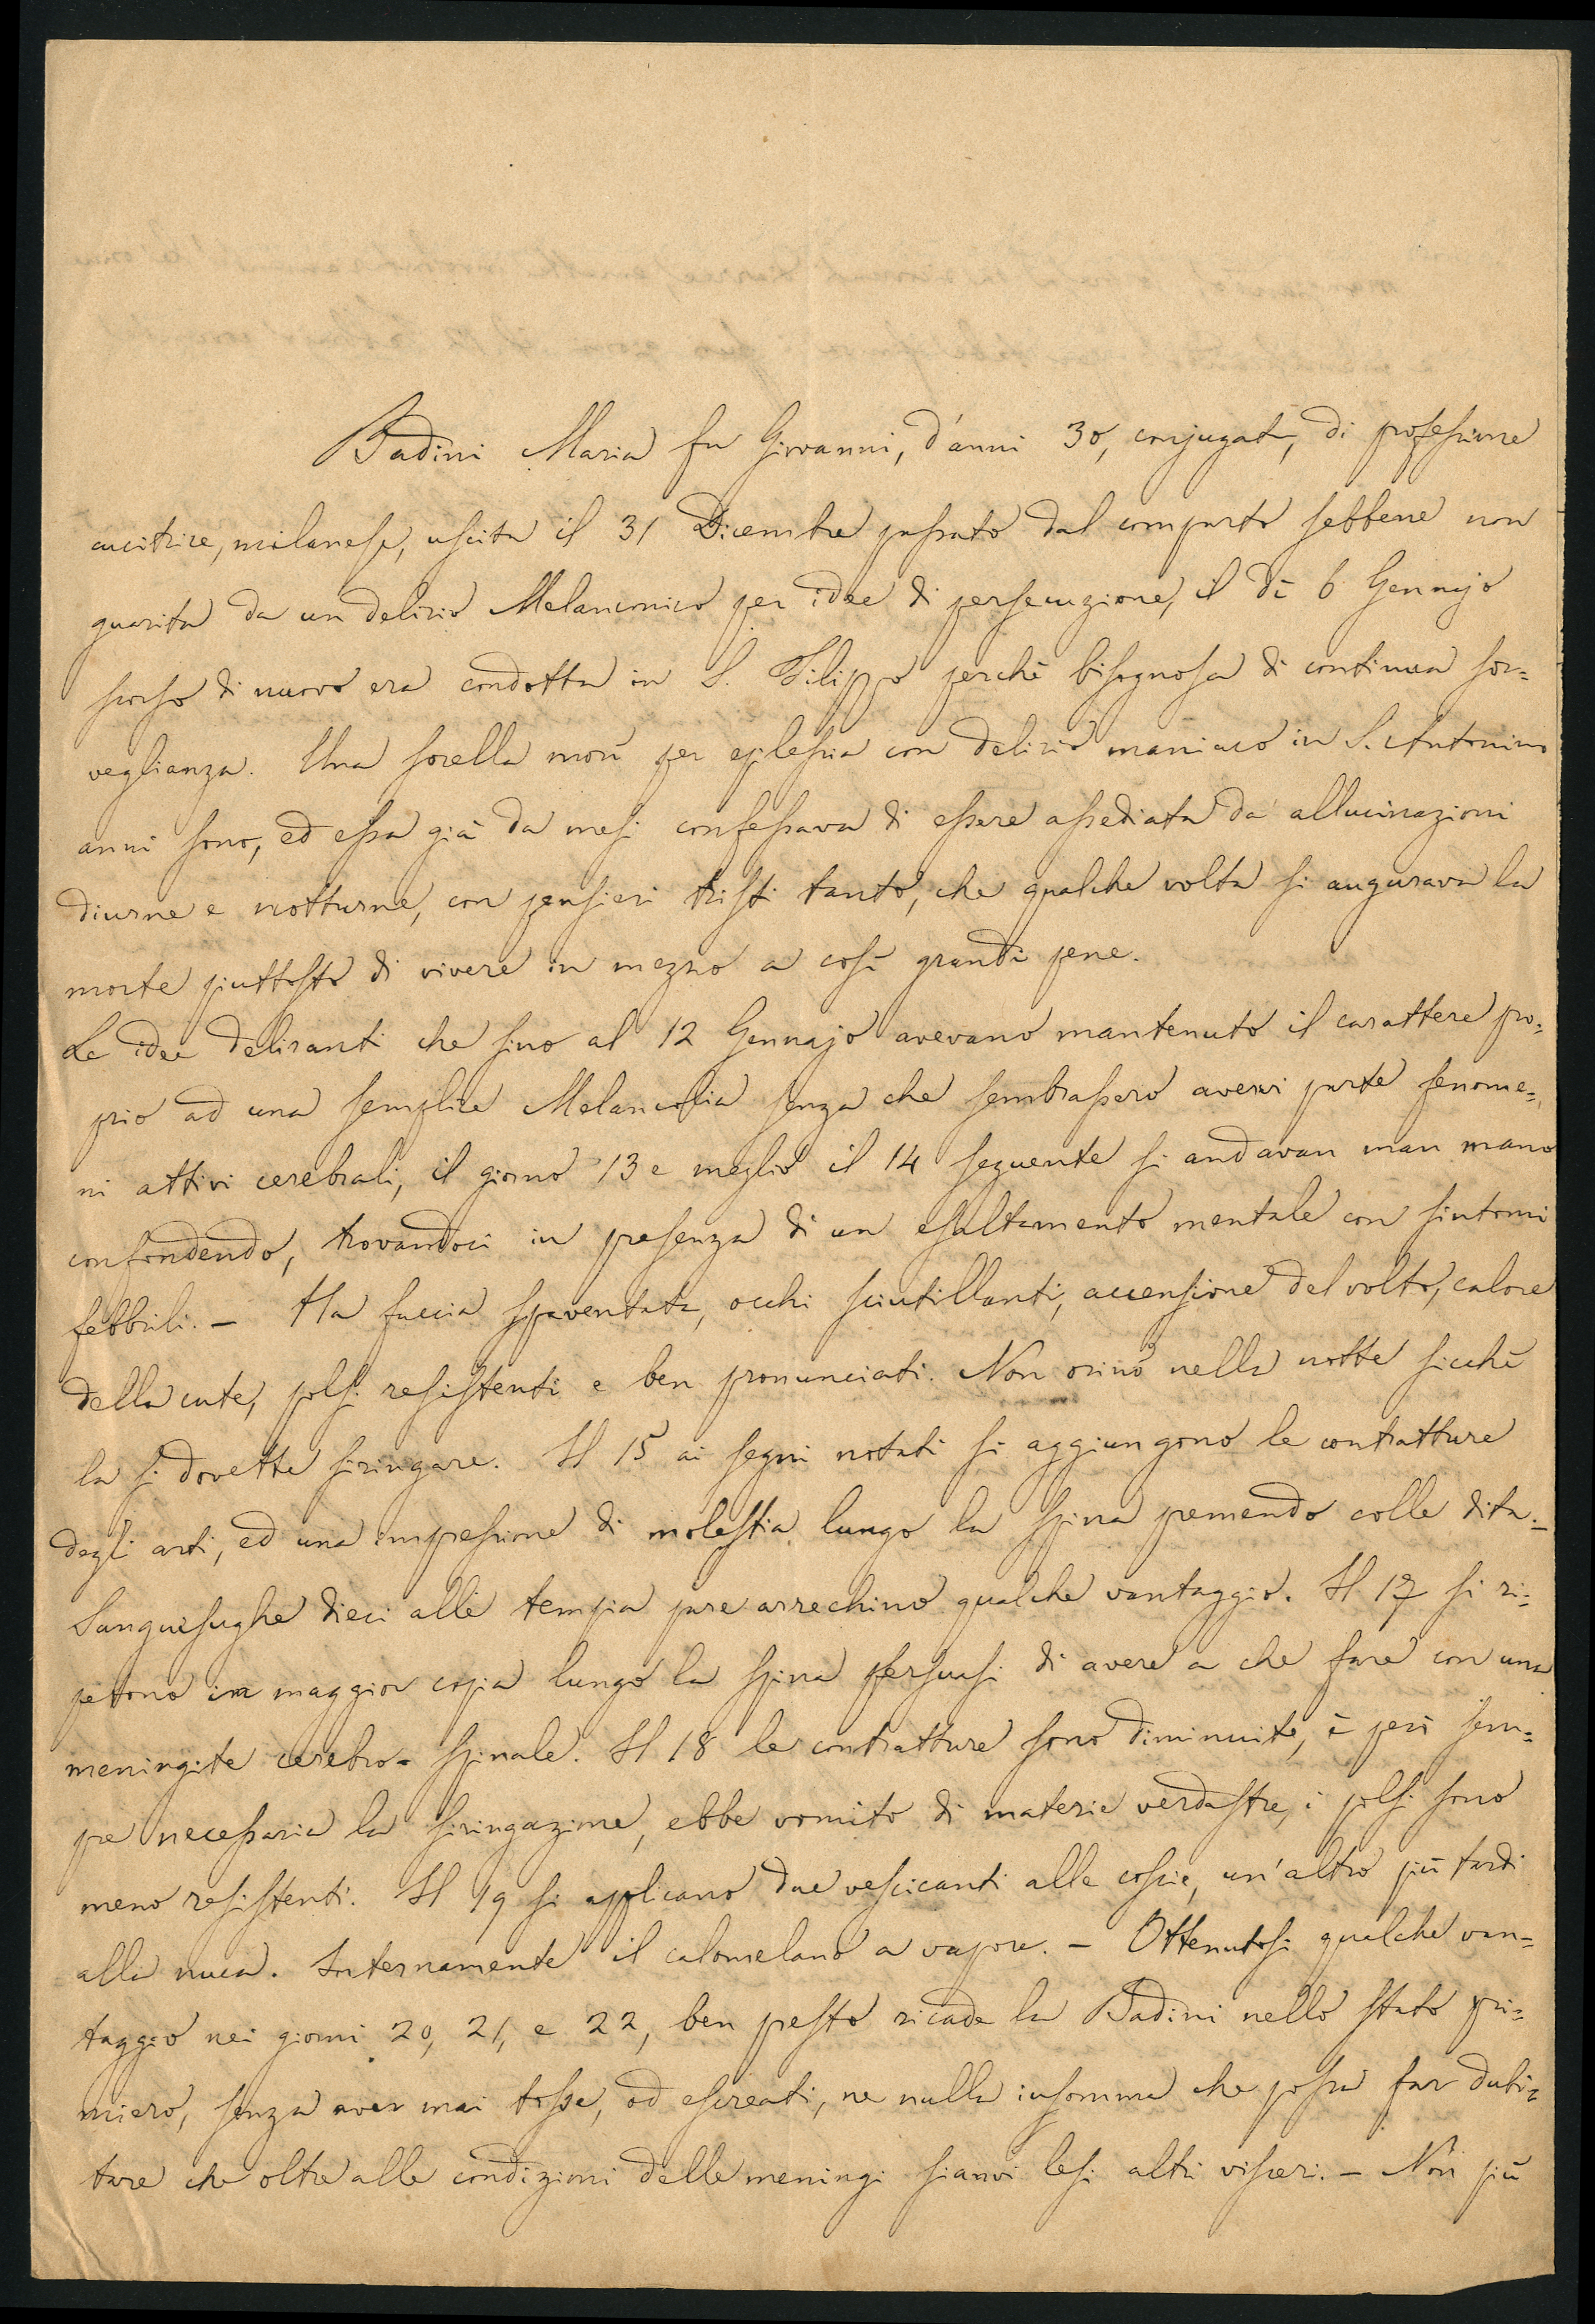 Badini Maria fu Giovanni, d'anni 30, conjugata, di professione
cucitrice, milanese, uscita il 31 Dicembre passato dal comparto sebbene non
guarita da un delirio Melanconico per idee di persecuzione, il dì 6 Gennajo
scorso di nuovo era condotta in S. Filippo perchè bisognosa di continua sor=
veglianza. Una sorella morì per eplessia con delirio maniaco in S. Antonino
anni sono, ed essa già da mesi confessava di essere assediata da allucinazioni
diurne e notturne, con pensieri tristi tanto, che qualche volta si augurava la
morte piuttosto di vivere in mezzo a così grandi pene.
Le idee deliranti che sino al 12 Gennajo avevano mantenuto il carattere pro=
prio ad una semplice Melancolia senza che sembrassero avervi parte fenome=
ni attivi cerebrali, il giorno 13 e meglio il 14 seguente si andavan man mano
confondendo, trovandoci in presenza di un esaltamento mentale con sintomi
febbrili. — Ha faccia spaventata, occhi scintillanti, accensione del volto, calore
della cute, polsi resistenti e ben pronunciati. Non orinò nella notte sicchè
la si dovette siringare. Il 15 ai segni notati si aggiungono le contratture
degli arti, ed una impressione di molestia lungo la spina premendo colle dita. —
Sanguisughe dieci alle tempia pare arrechino qualche vantaggio. Il 17 si ri=
petono in maggior copia lungo la spina persuasi di avere a che fare con una
meningite cerebro-spinale. Il 18 le contratture sono diminuite, è però sem=
pre necessaria la siringazione, ebbe vomito di materie verdastre, i polsi sono
meno resistenti. Il 19 si applicano due vescicanti alle coscie, un'altro più tardi
alla nuca. Internamente il calomelano a vapore. — Ottenutosi qualche van=
taggio nei giorni 20, 21, e 22, ben presto ricade la Badini nello stato pri=
miero, senza aver mai tosse, od escreati, ne nulla insomma che possa far dubi=
tare che oltre alle condizioni delle meningi sianvi lesi altri visceri. — Non più